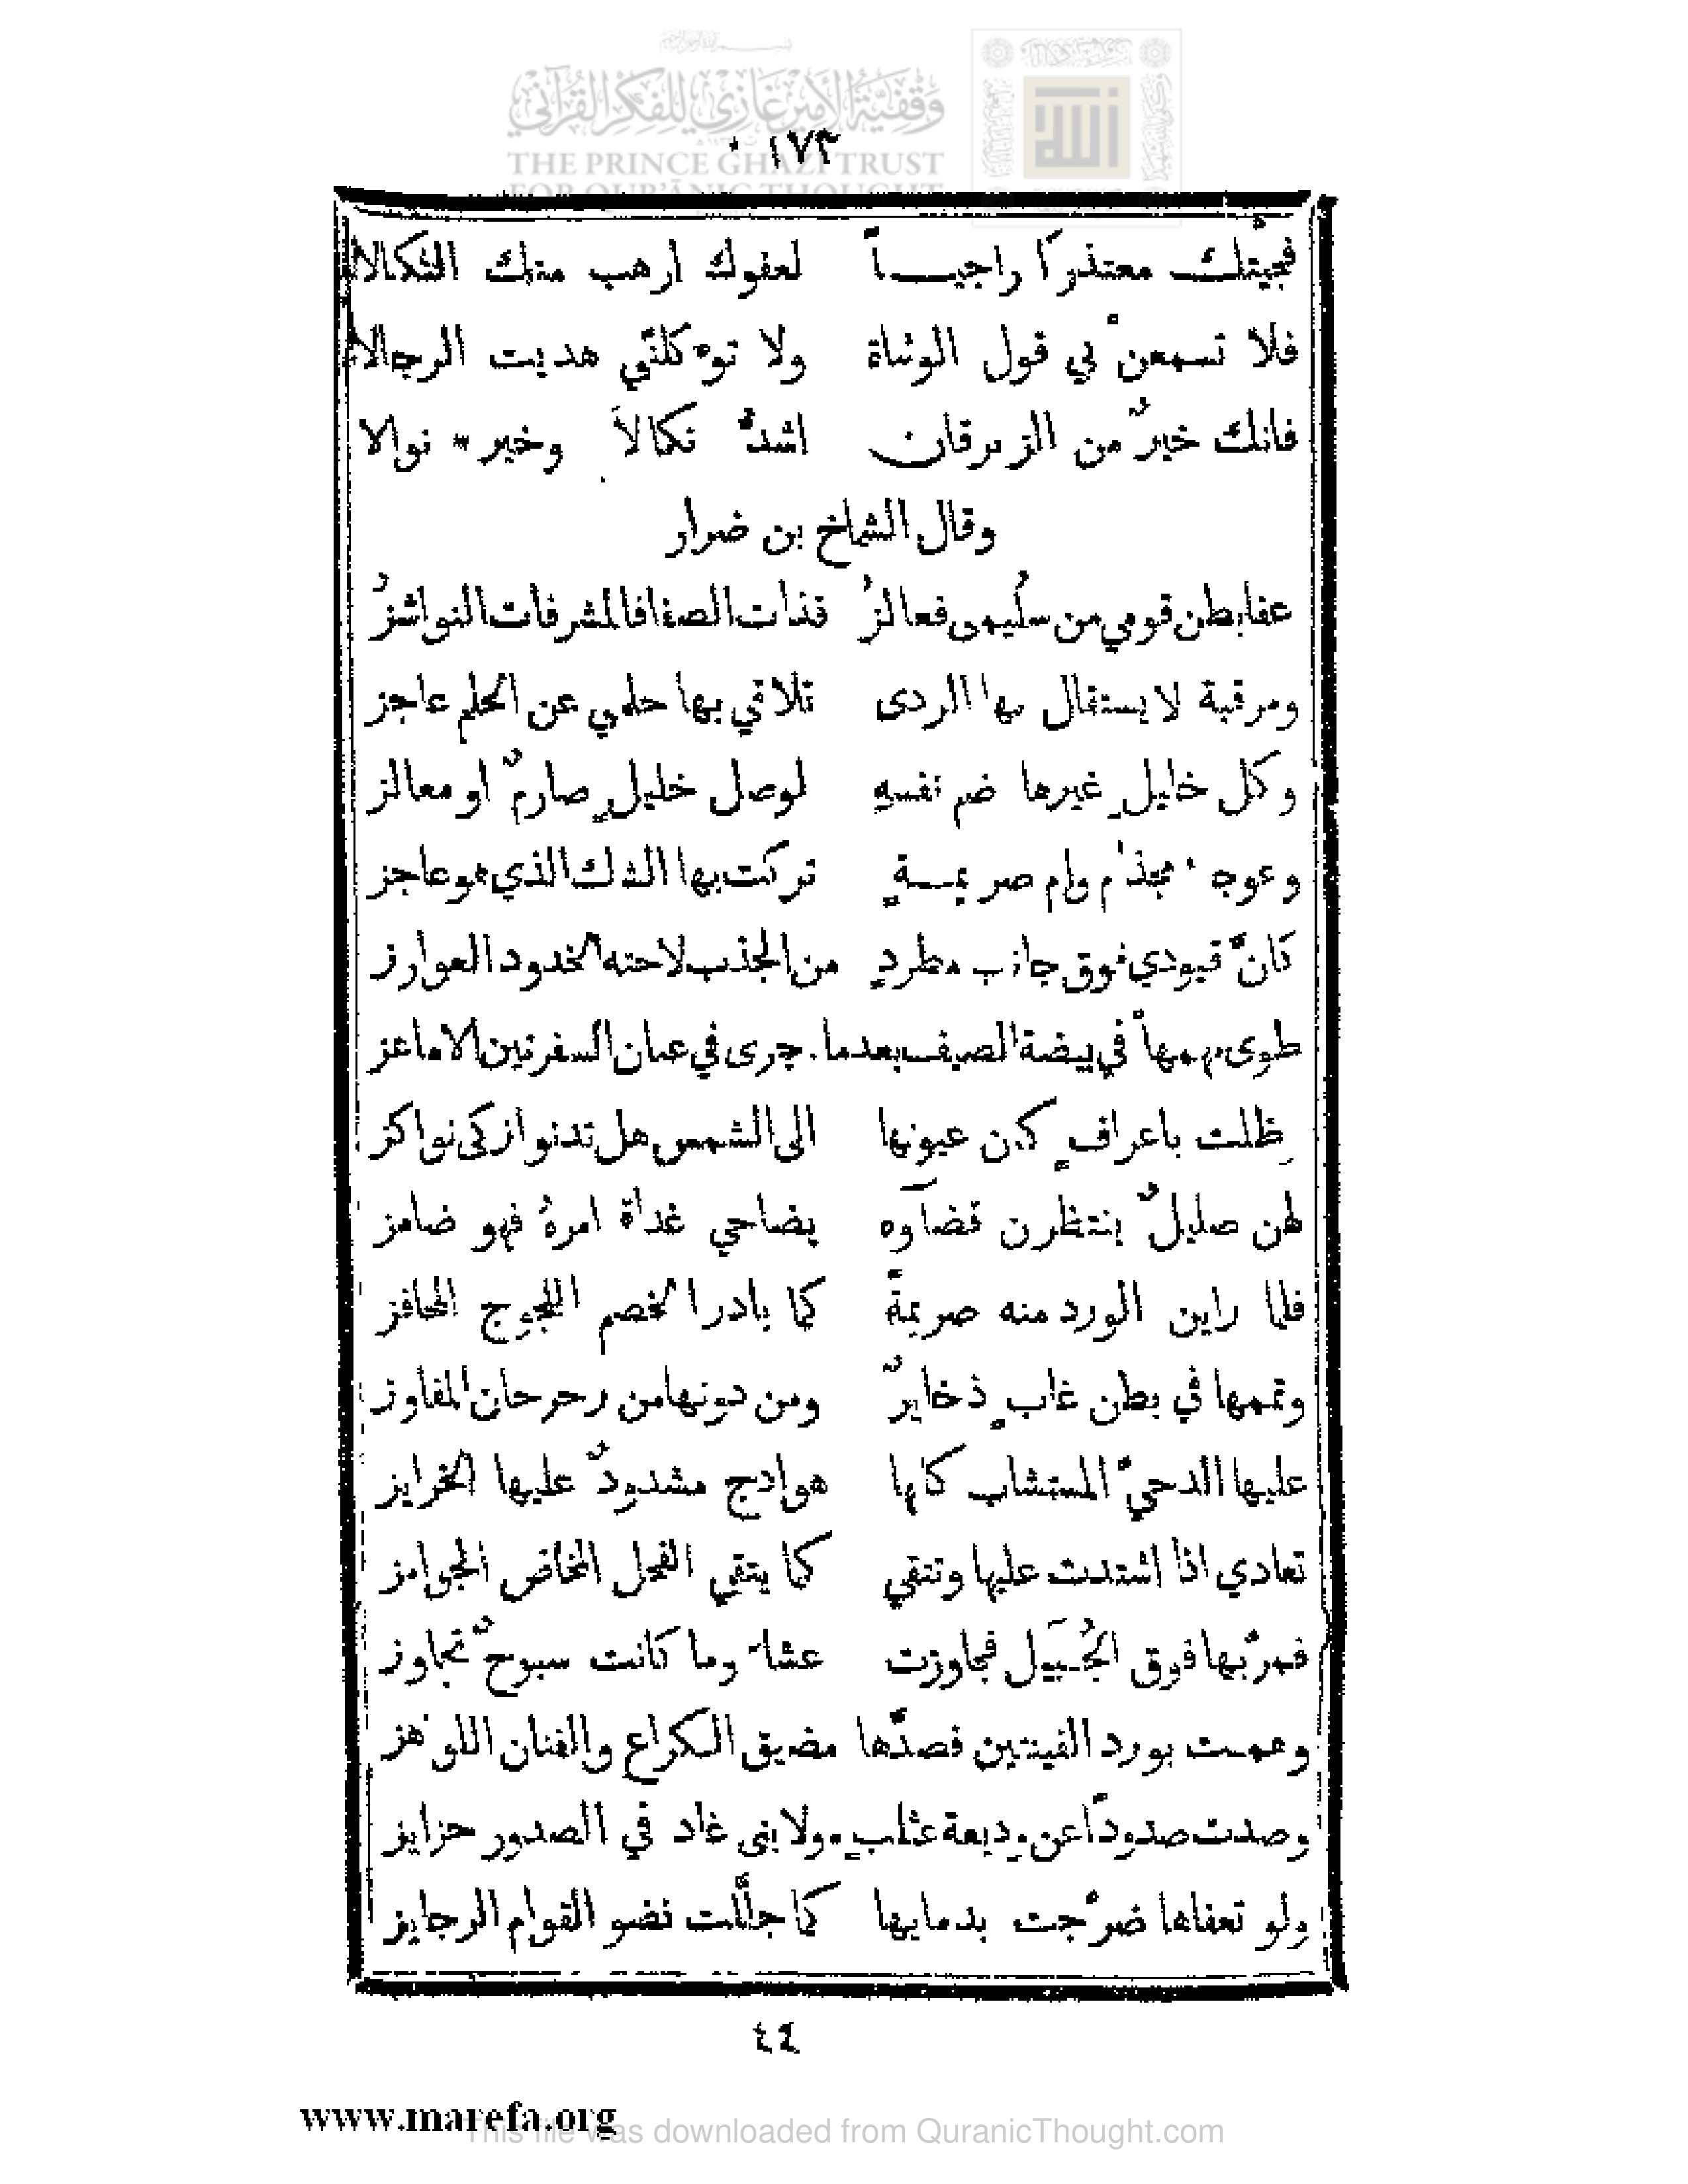 وقفية الأمير غازي للفكر القرآني
THE PRINCE GHAZI TRUST
FOR QUR'ĀNIC THOUGHT
١٧٣
فجيتك معتذرًا راجيــاً لعفوك ارهب منك النكالا
فلا تسمعنْ بي قول الوشاة ولا توءكلنّي هديت الرجالا
فانك خيرٌ من الزبرقان اشدُّ نكالاً وخيرٌ نوالا
وقال الشماخ بن ضرار
عفا بطن قومي من سُليمى فعالزُ فذات الصفا فالمشرفات النواشزُ
ومرقبة لا يستقال بها الردى تلاقي بها حلمي عن الحلم عاجز
وكل خليلٍ غيرها ضم نفسهِ لوصل خليلٍ صارمٌ او معالز
وعوجاء مجذام وام صريمــةٍ تركت بها الشك الذي هو عاجز
كانَّ قيودي فوق جانب مطردٍ من الجذب لاحته الخدود العوارز
طوى مهمهاً في بيضة الصيف بعدما جرى في عنان السفرتين الاماعز
ظلت باعرافٍ كان عيونها الى الشمس هل تدنو ازكى نواكز
لهن صليلٌ ينتظرن قضآوه بضاحي غداة امرهُ فهو ضامز
فلما راين الورد منه صريمةً كما بادر الخصم اللجوج المحافز
وتممها في بطن غابٍ ذخايرٌ ومن دونها من رحرحان المفاوز
عليها الدحيّ المستشاب كانها هوادج مشدودٌ عليها الخرايز
تعادي اذا اشتدت عليها وتتقي كما يتقي الفحل المخاض الجوامز
فمرّ بها فوق الجُبَيل فجاوزت عشاء وما كانت سبوحٌ تجاوز
وعمت بورد القينتين فصدَّها مضيق الكراع والفنان اللوهز
وصدت صدودًا عن وديعة عثلبٍ ولابنى غاد في الصدور حزايز
ولو تعفاها ضرّجت بدمايها كما جلَّلت نضو القوام الرجايز
٤٤
www.marefa.org
This file was downloaded from QuranicThought.com